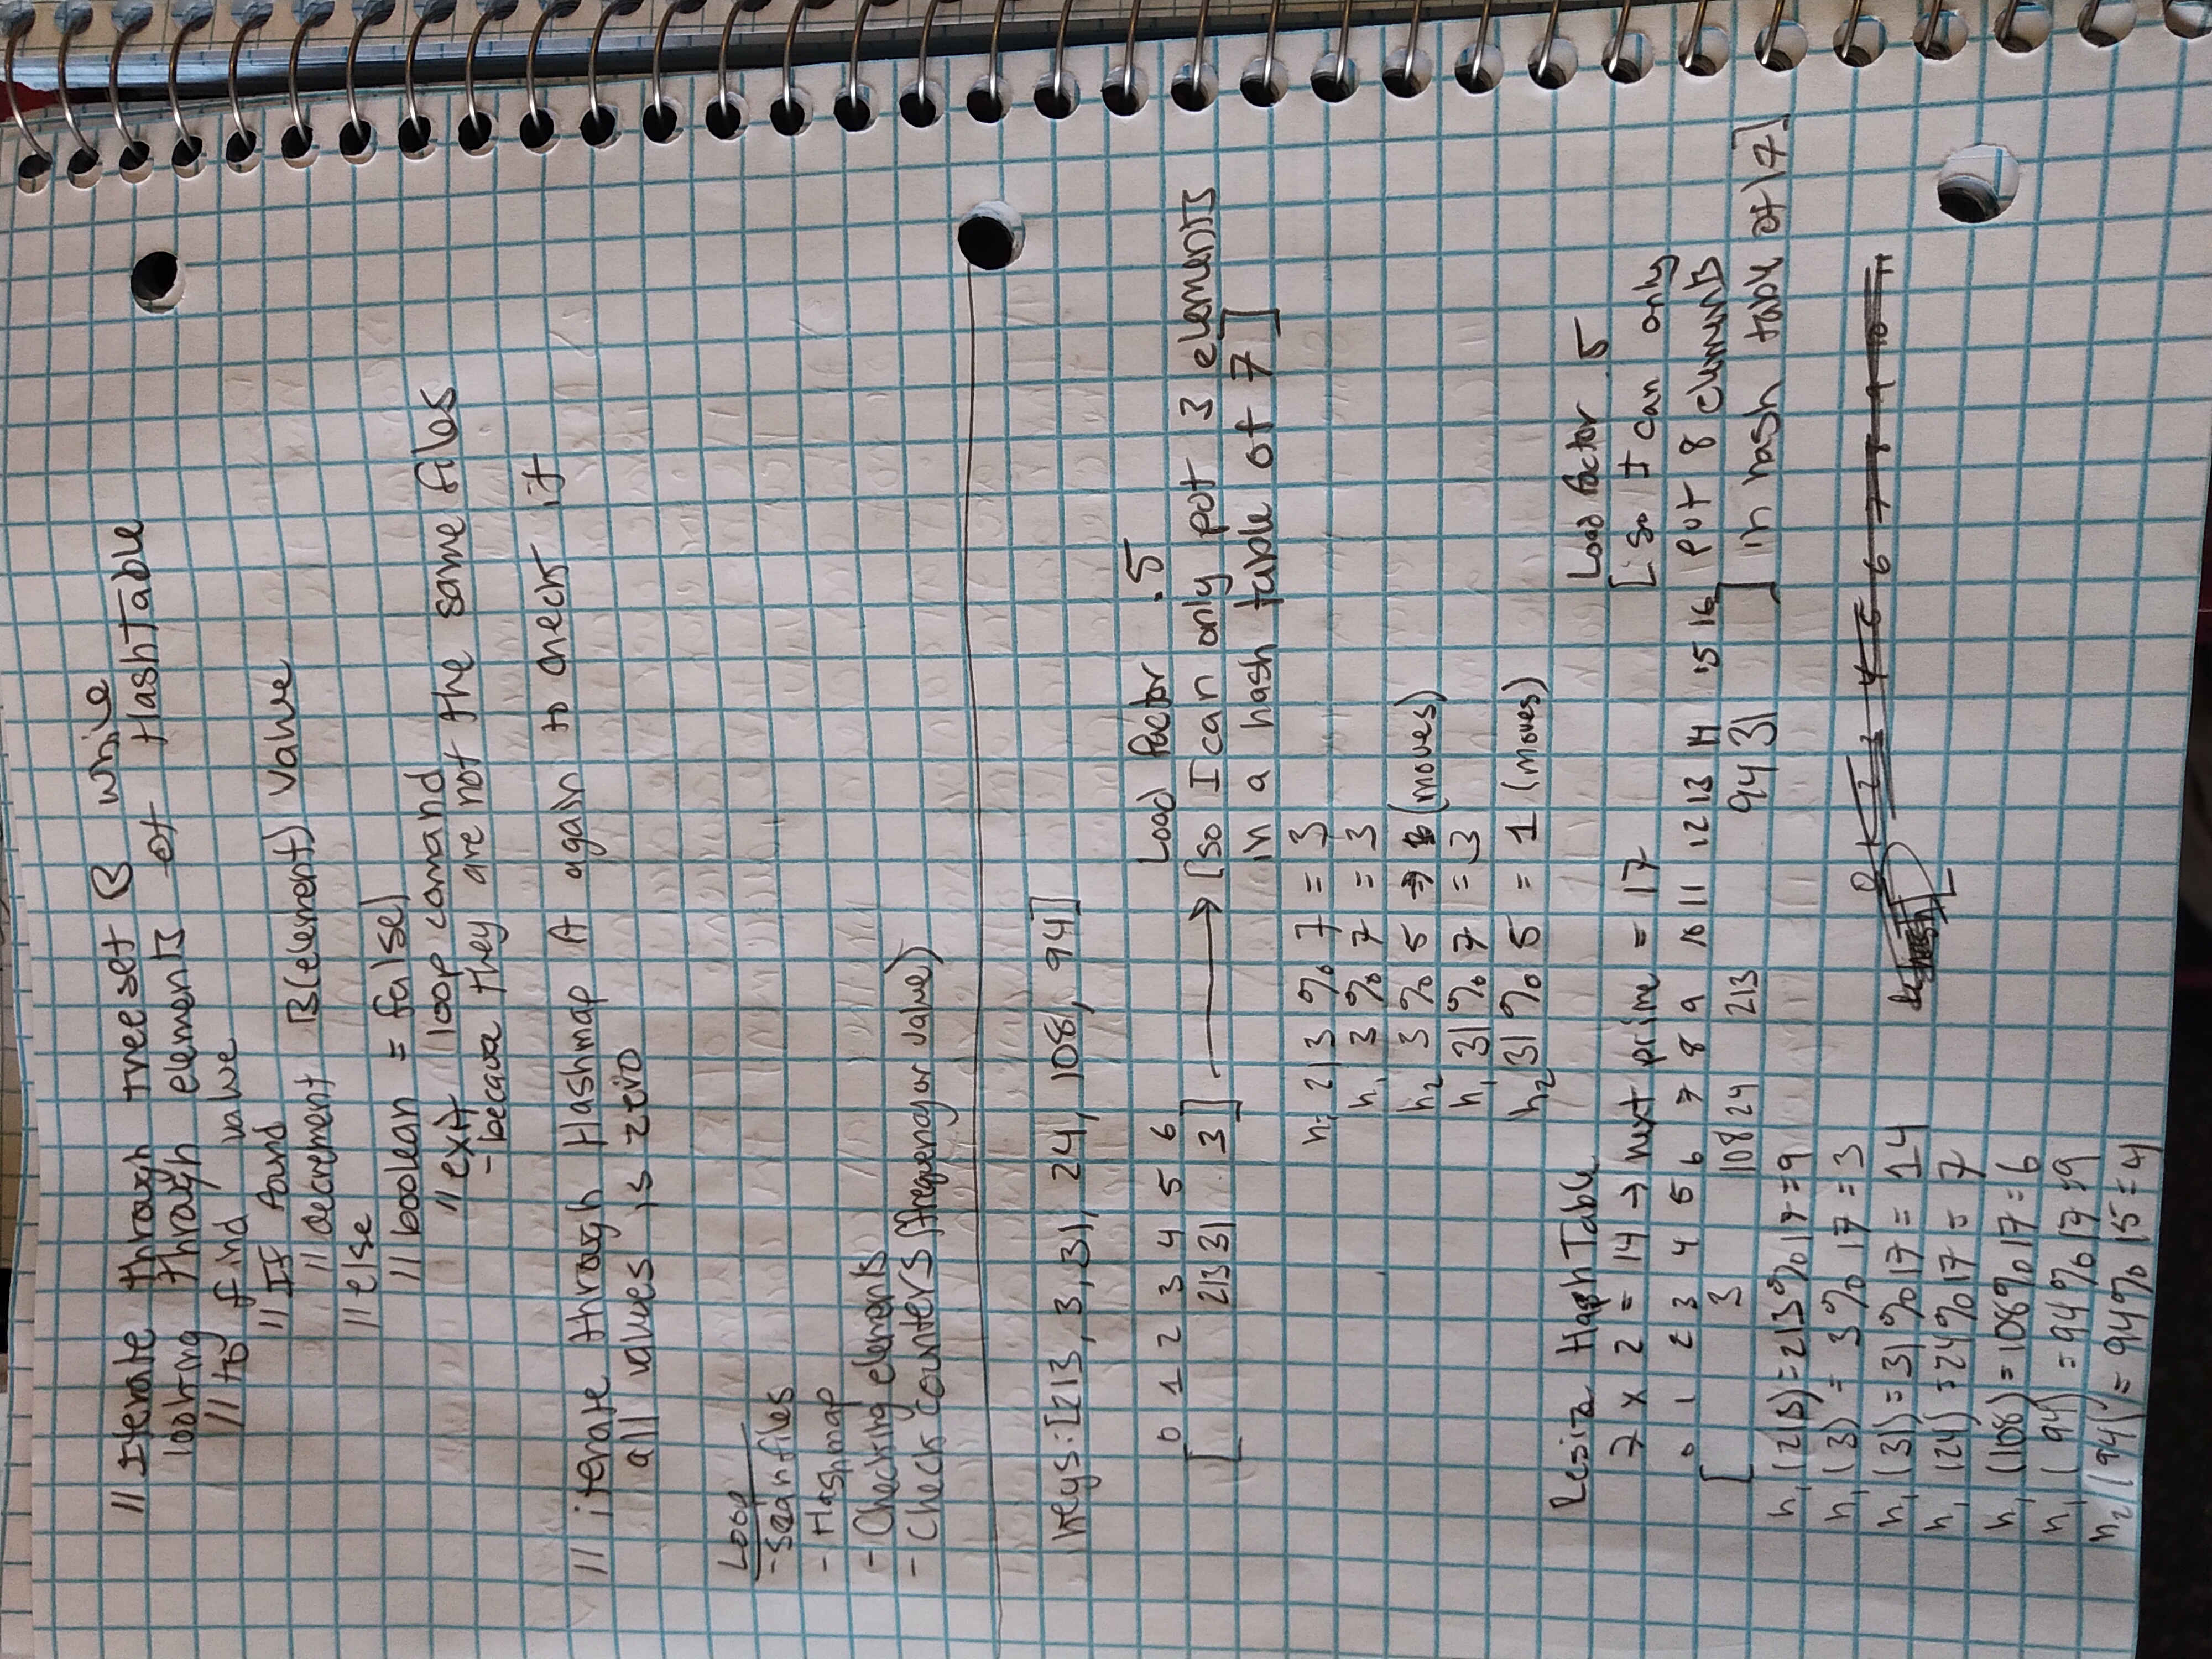 // Iterate through treeset B while
looking through elements of HashTable
// to find value
// If found
// decrement B(element) value
// else
// boolean = false)
// exit loop comand
- becaue they are not the same files
// iterate through Hashmap A again to check if
all values is zero
Loop
- scan files
- Hashmap
- Checking elements
- Check counters (frequency or value)
keys: [213, 3, 31, 24, 108, 94]
0 1 2 3 4 5 6
[ 213 31 3 ] → [so I can only put 3 elements
Load factor .5
in a hash table of 7]
h1 213 % 7 = 3
h1 3 % 7 = 3
h2 3 % 5 → 3 (moves)
h1 31 % 7 = 3
h2 31 % 5 = 1 (moves)
Resize Hash Table
7 x 2 = 14 → next prime = 17
Load factor .5
[so I can only
put 8 elements
in hash table of 17]
0 1 2 3 4 5 6 7 8 9 10 11 12 13 14 15 16
[ 3 108 24 213 94 31 ]
h1 (213) = 213 % 17 = 9
h1 (3) = 3 % 17 = 3
h1 (31) = 31 % 17 = 14
h1 (24) = 24 % 17 = 7
h1 (108) = 108 % 17 = 6
h1 (94) = 94 % 17 = 9
h2 (94) = 94 % 15 = 4
0 1 2 3 4 5 6 7 8 9 10 11
hash